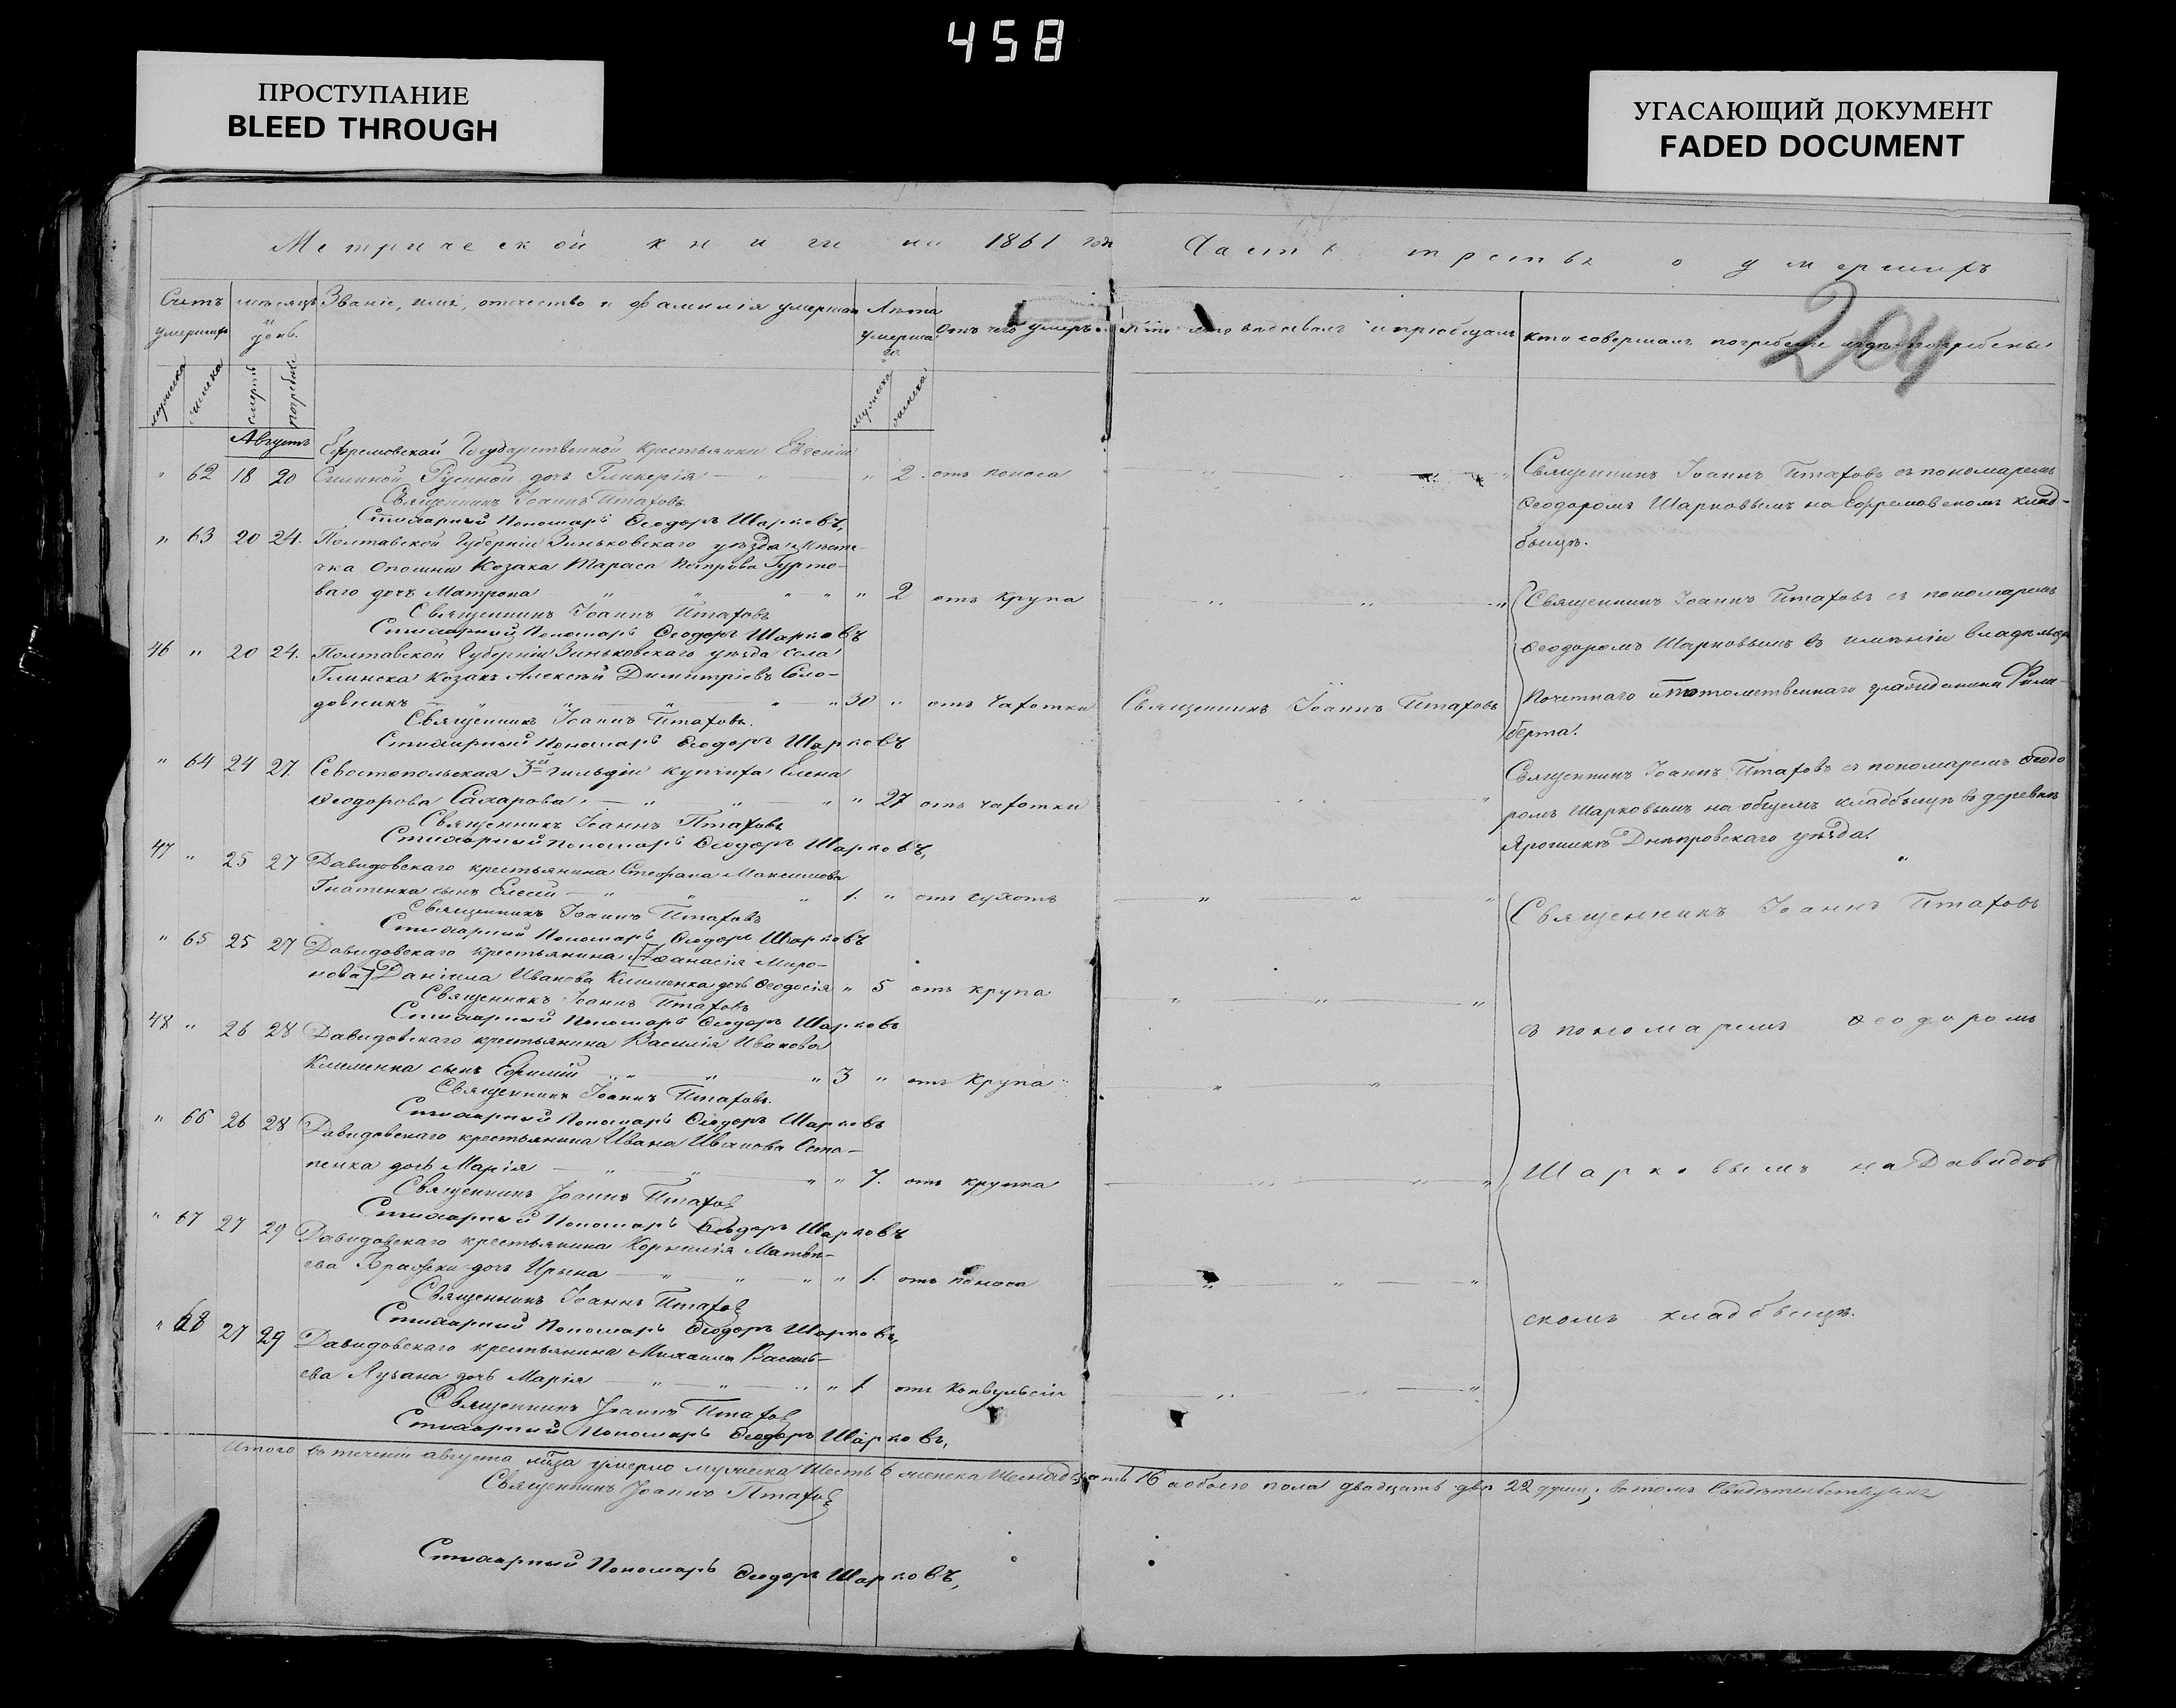 458
ПРОСТУПАНИЕ
BLEED THROUGH
УГАСАЮЩИЙ ДОКУМЕНТ
FADED DOCUMENT
Метрической книги на 1861 годъ Часть третья о умершихъ
Счетъ умершихъ
мѣсяцъ и день
Званіе, имя, отчество и фамилія умершаго
Лѣта умершаго
Отъ чего умеръ
Кто исповѣдывалъ и пріобщалъ
Кто совершалъ погребеніе и гдѣ погребены
204
мужеска женска смерть погребеніе мужеска женска
Августъ
Ефремовской Государственной крестьянки Евгеніи
" 62 18 20 Силиной Гусиной дочь Гликерія " " 2 отъ поноса
Священникъ Іоаннъ Птаховъ съ пономаремъ
Ѳеодоромъ Шарковымъ на Ефремовскомъ клад-
бищѣ.
Священникъ Іоаннъ Птаховъ
Стихарный Пономарь Ѳеодоръ Шарковъ,
" 63 20 24. Полтавской Губерніи Зиньковскаго уѣзда Мѣсте-
чка Опошни Козака Тараса Петрова Гурто-
ваго дочь Матрона " " " " " 2 отъ крупа
Священникъ Іоаннъ Птаховъ
Стихарный Пономарь Ѳеодоръ Шарковъ
46 " 20 24. Полтавской Губерніи Зиньковскаго уѣзда села
Глинска Козакъ Алексѣй Димитріевъ Соло-
довникъ " " " " 30 " отъ чахотки Священникъ Іоаннъ Птаховъ
Священникъ Іоаннъ Птаховъ съ пономаремъ
Ѳеодоромъ Шарковымъ въ имѣніи владѣльца
Почетнаго и потомственнаго гражданина Фили-
берта.
Священникъ Іоаннъ Птаховъ.
Стихарный Пономарь Ѳеодоръ Шарковъ
" 64 24 27. Севостопольская 3й гильдіи купчиха Елена
Ѳеодорова Сахарова. " " " " 27 отъ чахотки
Священникъ Іоаннъ Птаховъ съ пономаремъ Ѳеодо
ромъ Шарковымъ на общемъ кладбищѣ въ деревнѣ
Днѣпровскаго уѣзда.
Священникъ Іоаннъ Птаховъ
Стихарный Пономарь Ѳеодоръ Шарковъ,
47 " 25 27 Давидовскаго крестьянина Стефана Максимова
Гнатенка сынъ Елесей " " " 1. " отъ сухотъ
Священникъ Іоаннъ Птаховъ
Стихарный Пономарь Ѳеодоръ Шарковъ
" 65 25 27 Давидовскаго крестьянина [Аѳанасія Миро-
нова] Даніила Иванова Клименка дочь Ѳеодосія " 5 отъ крупа
Священникъ Іоаннъ Птаховъ
Стихарный Пономарь Ѳеодоръ Шарковъ
48 " 26 28 Давидовскаго крестьянина Василія Иванова
Клименка сынъ Ефимій " " " 3 " отъ крупа
Священникъ Іоаннъ Птаховъ.
Стихарный Пономарь Ѳеодоръ Шарковъ
" 66 26 28 Давидовскаго крестьянина Ивана Иванова Оста-
пенка дочь Марія " " " " 7. отъ круппа
Священникъ Іоаннъ Птаховъ
Стихарный Пономарь Ѳеодоръ Шарковъ
" 67 27 29 Давидовскаго крестьянина Корнилія Матвѣ-
ева дочь Ирына " " " " 1. отъ поноса
Священникъ Іоаннъ Птаховъ
Стихарный Пономарь Ѳеодоръ Шарковъ,
" 68 27 29 Давидовскаго крестьянина Михаила Василь-
ева Лузана дочь Марія " " " " 1. отъ конвульсіи
Священникъ Іоаннъ Птаховъ
съ пономаремъ Ѳеодоромъ
Шарковымъ на Давидов
скомъ кладбищѣ.
Священникъ Іоаннъ Птаховъ
Стихарный Пономарь Ѳеодоръ Шарковъ,
Итого въ теченіи августа мца умерло мужеска Шесть 6 женска Шестнадцать 16 а обоего пола двадцать двѣ 22 души; въ томъ Свидѣтельствуемъ
Священникъ Іоаннъ Птаховъ
Стихарный Пономарь Ѳеодоръ Шарковъ,